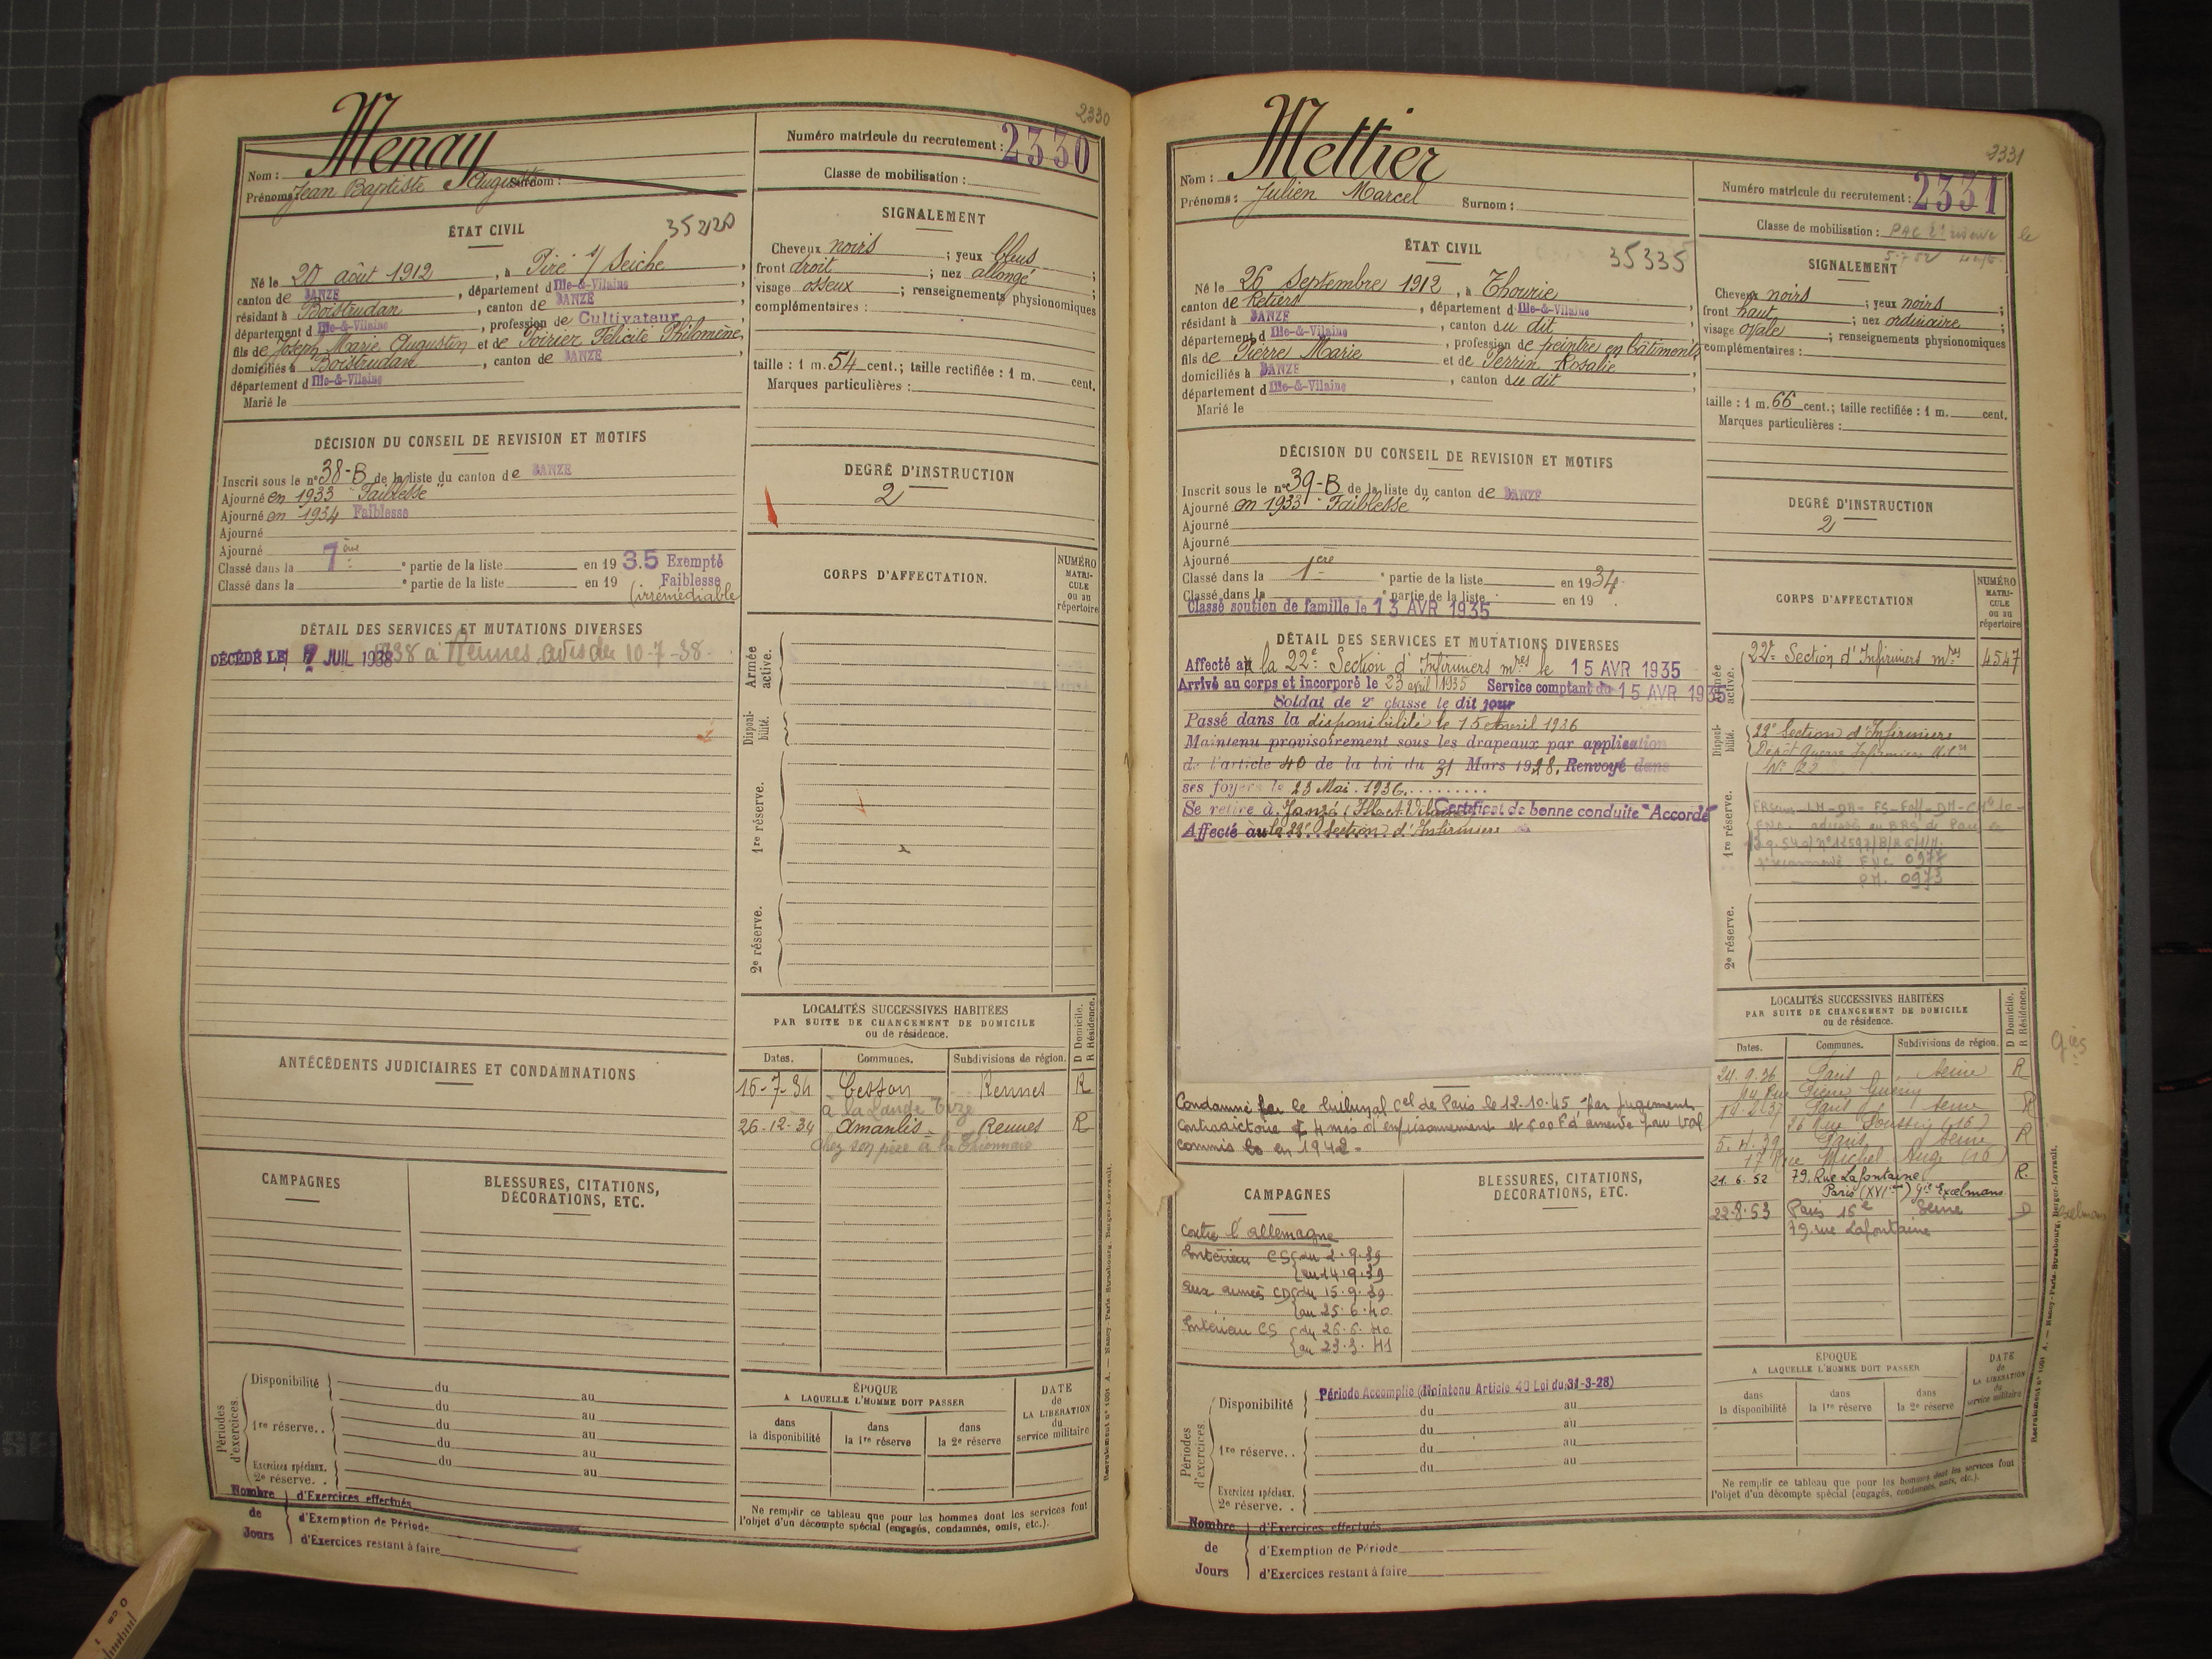 2330
Menay
Numéro matricule du recrutement : 2330
Nom :
Prénoms : Jean Baptiste Auguste Surnom :
Classe de mobilisation :
ÉTAT CIVIL
35220
Né le 20 août 1912, à Piré s/ Seiche,
canton de JANZE, département d Ille-&-Vilaine
résidant à Boistrudan, canton de JANZE,
département d Ille-&-Vilaine, profession de Cultivateur
fils de Joseph Marie Augustin et de Poirier Félicité Philomène,
domiciliés à Boistrudan, canton de JANZE,
département d Ille-&-Vilaine
Marié le
SIGNALEMENT
Cheveux noirs ; yeux bleus ;
front droit ; nez allongé ;
visage osseux ; renseignements physionomiques
complémentaires :
taille : 1 m. 54 cent.; taille rectifiée : 1 m. cent.
Marques particulières :
DÉCISION DU CONSEIL DE REVISION ET MOTIFS
Inscrit sous le n° 38-B de la liste du canton de JANZE
Ajourné en 1933 "Faiblesse"
Ajourné en 1934 Faiblesse
Ajourné
Ajourné
Classé dans la 7ème partie de la liste en 1935 Exempté
Classé dans la e partie de la liste en 19 Faiblesse
(irrémédiable
DEGRÉ D'INSTRUCTION
2
DÉTAIL DES SERVICES ET MUTATIONS DIVERSES
DÉCÉDÉ LE 7 JUIL 1938 à Rennes avis du 10-7-38
CORPS D'AFFECTATION.
NUMÉRO MATRI-CULE ou au répertoire
Armée active.
Disponi-bilité.
1re réserve.
2e réserve.
ANTÉCÉDENTS JUDICIAIRES ET CONDAMNATIONS
LOCALITÉS SUCCESSIVES HABITÉES
PAR SUITE DE CHANGEMENT DE DOMICILE
ou de résidence.
D Domicile.
R Résidence.
Dates. Communes. Subdivisions de région.
16-7-34 Cesson Rennes R
à la Lande
26-12-34 Amanlis Rennes R
chez son père à la
CAMPAGNES
BLESSURES, CITATIONS,
DÉCORATIONS, ETC.
Périodes d'exercices.
Disponibilité du au
du au
1re réserve. . du au
du au
Exercices spéciaux. du au
2e réserve. .
ÉPOQUE
A LAQUELLE L'HOMME DOIT PASSER
dans la disponibilité
dans la 1re réserve
dans la 2e réserve
DATE de LA LIBÉRATION du service militaire
Ne remplir ce tableau que pour les hommes dont les services font
l'objet d'un décompte spécial (engagés, condamnés, omis, etc.).
Nombre de Jours
d'Exercices effectués
d'Exemption de Période
d'Exercices restant à faire
Recrutement n° 1051 A. — Nancy-Paris-Strasbourg, Berger-Levrault.
2331
Mettier
Numéro matricule du recrutement : 2331
Nom :
Prénoms : Julien Marcel Surnom :
Classe de mobilisation : PAC 2e réserve le
ÉTAT CIVIL
35335
Né le 26 Septembre 1912, à Thourie,
canton de Retiers, département d Ille-&-Vilaine
résidant à JANZE, canton du dit,
département d Ille-&-Vilaine, profession de peintre en bâtiments
fils de Pierre Marie et de Perrin Rosalie,
domiciliés à JANZE, canton du dit,
département d Ille-&-Vilaine
Marié le
SIGNALEMENT
Cheveux noirs ; yeux noirs ;
front haut ; nez ordinaire ;
visage ovale ; renseignements physionomiques
complémentaires :
taille : 1 m. 66 cent.; taille rectifiée : 1 m. cent.
Marques particulières :
DÉCISION DU CONSEIL DE REVISION ET MOTIFS
Inscrit sous le n° 39-B de la liste du canton de JANZE
Ajourné en 1933 "Faiblesse"
Ajourné
Ajourné
Ajourné
Classé dans la 1ère partie de la liste en 1934
Classé dans la e partie de la liste en 19
Classé soutien de famille le 13 AVR 1935
DEGRÉ D'INSTRUCTION
2
DÉTAIL DES SERVICES ET MUTATIONS DIVERSES
Affecté à la 22e Section d'Infirmiers mres le 15 AVR 1935
Arrivé au corps et incorporé le 23 avril 1935 Service comptant du 15 AVR 1935
Soldat de 2e classe le dit jour
Passé dans la disponibilité le 15 Avril 1936
Maintenu provisoirement sous les drapeaux par application
de l'article 40 de la loi du 31 Mars 1928. Renvoyé dans
ses foyers le 23 Mai 1936
Se retire à Janzé (Ille et Vilaine) Certificat de bonne conduite "Accordé"
Affecté à la 22e Section d'Infirmiers
CORPS D'AFFECTATION
NUMÉRO MATRI-CULE ou au répertoire
Armée active.
22e Section d'Infirmiers mres 4547
Disponi-bilité.
22e Section d'Infirmiers
Dépôt Guerre Infirmiers
N° 22
1re réserve.
FNC 0977
PM. 0973
2e réserve.
Condamné par le tribunal cel de Paris le 12.10.45 par jugement
contradictoire à 4 mois d'emprisonnement et 500 F d'amende pour vol
commis en 1942 -
LOCALITÉS SUCCESSIVES HABITÉES
PAR SUITE DE CHANGEMENT DE DOMICILE
ou de résidence.
D Domicile.
R Résidence.
Dates. Communes. Subdivisions de région.
24.9.36 Paris Seine R
14 Rue Pierre Guérin
Paris Seine R
26 Rue Poussin (16)
5.4.39 Paris Seine R
17 Rue Michel Ange (16)
21.6.52 79, Rue Lafontaine R.
Paris (XVIe) Gie Exelmans
22.8.53 Paris 16e Seine D
79 rue Lafontaine
CAMPAGNES
Contre l'allemagne
Intérieur CS du 2.9.39
au 14.9.39
aux armées CD du 15.9.39
au 25.6.40
Intérieur CS du 26.6.40
au 23.3.41
BLESSURES, CITATIONS,
DÉCORATIONS, ETC.
Périodes d'exercices.
Période Accomplie (Maintenu Article 40 Loi du 31-3-28)
Disponibilité du au
du au
1re réserve. . du au
du au
Exercices spéciaux.
2e réserve. .
ÉPOQUE
A LAQUELLE L'HOMME DOIT PASSER
dans la disponibilité
dans la 1re réserve
dans la 2e réserve
DATE de LA LIBÉRATION du service militaire
Ne remplir ce tableau que pour les hommes dont les services font
l'objet d'un décompte spécial (engagés, condamnés, omis, etc.).
Nombre de Jours
d'Exercices effectués
d'Exemption de Période
d'Exercices restant à faire
Recrutement n° 1051 A. — Nancy-Paris-Strasbourg, Berger-Levrault.